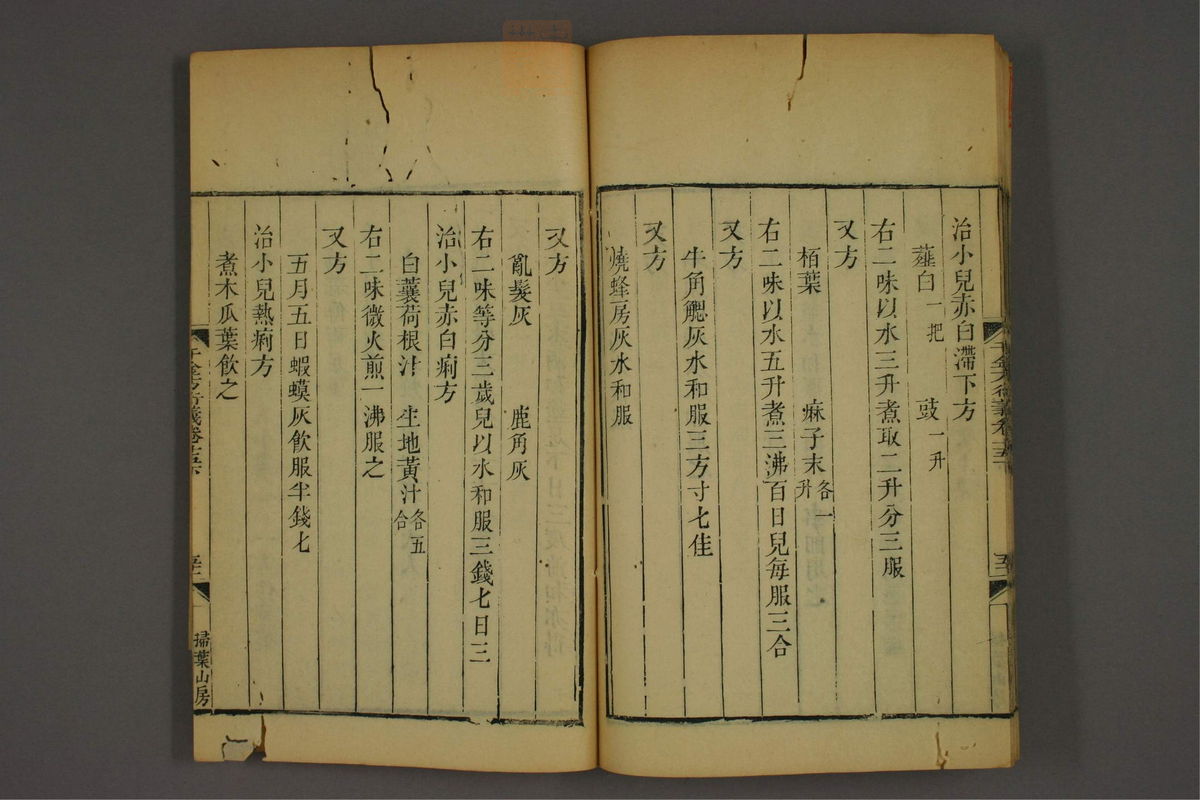 治小兒赤白滯下方
薤白一把　豉一升
右二味以水三升煮取二升分三服
又方
栢葉　麻子末各一升
右二味以水五升煮三沸百日兒每服三合
又方
牛角䚡灰水和服三方寸七佳
又方
燒蜂房灰水和服
又方
亂髮灰　鹿角灰
右二味等分三歲兒以水和服三錢七日三
治小兒赤白痢方
白蘘荷根汁　生地黃汁各五合
右二味微火煎一沸服之
又方
五月五日蝦蟆灰飲服半錢七
治小兒熱痢方
煮木瓜葉飲之
千金方衍義卷十五下
掃葉山房